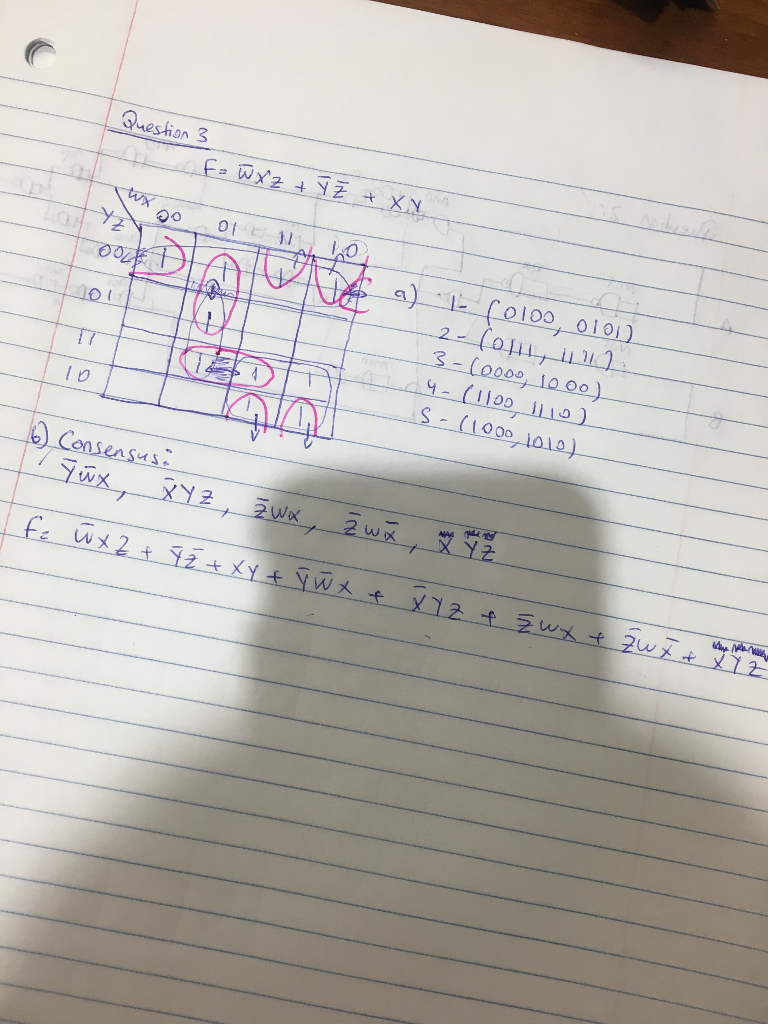 Question 3
F = W̄XZ + ȲZ̄ + XY
WX
YZ 00 01 11 10
00 1 1 1 1
01 1
11 1 1 1
10 1 1
a) 1- (0100, 0101)
2- (0111, 1111)
3- (0000, 1000)
4- (1100, 1110)
5- (1000, 1010)
b) Consensus:
ȲW̄X, X̄YZ, Z̄WX, Z̄WX̄,
F = W̄XZ + ȲZ̄ + XY + ȲW̄X + X̄YZ + Z̄WX + Z̄WX̄ +